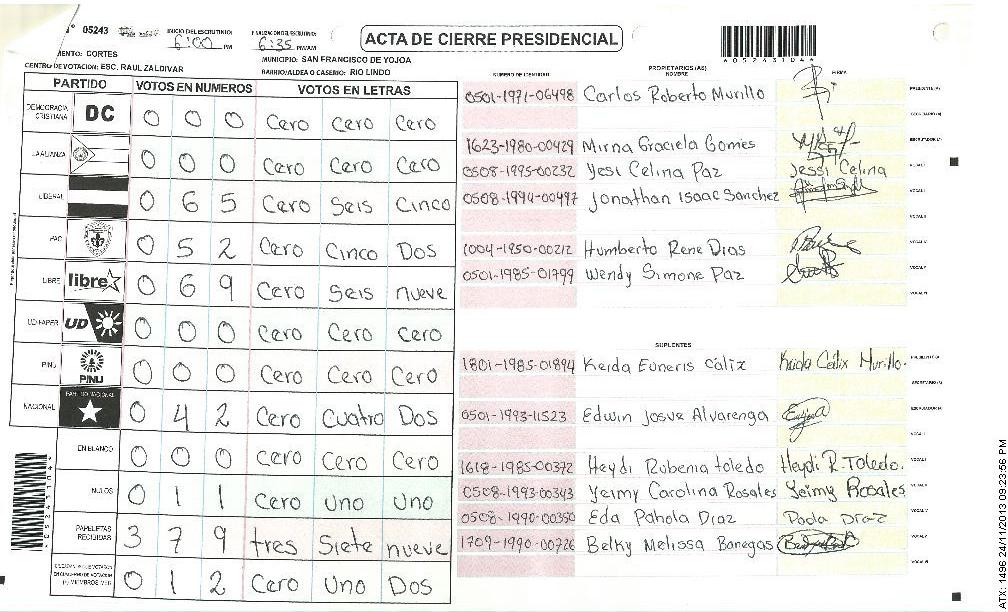 N° 05243
INICIO DEL ESCRUTINIO: 6:00 PM
FINALIZACION DEL ESCRUTINIO: 6:35 PM/AM
ACTA DE CIERRE PRESIDENCIAL
MENTO: CORTES
MUNICIPIO: SAN FRANCISCO DE YOJOA
CENTRO DE VOTACION: ESC. RAUL ZALDIVAR
BARRIO/ALDEA O CASERIO: RIO LINDO
PARTIDO VOTOS EN NUMEROS VOTOS EN LETRAS
DEMOCRACIA CRISTIANA DC 0 0 0 Cero Cero Cero
LA ALIANZA 0 0 0 Cero Cero Cero
LIBERAL 0 6 5 Cero Seis Cinco
PAC 0 5 2 Cero Cinco Dos
LIBRE libre 0 6 9 Cero Seis nueve
UD FAPER UD 0 0 0 Cero Cero Cero
PINU PINU 0 0 0 Cero Cero Cero
NACIONAL PARTIDO NACIONAL 0 4 2 Cero Cuatro Dos
EN BLANCO 0 0 0 Cero Cero Cero
NULOS 0 1 1 Cero Uno Uno
PAPELETAS RECIBIDAS 3 7 9 tres Siete nueve
0 1 2 Cero Uno Dos
*05243104*
PROPIETARIOS (AS)
NUMERO DE IDENTIDAD NOMBRE FIRMA
0501-1971-06498 Carlos Roberto Murillo PRESIDENTE (A)
SECRETARIO (A)
1623-1980-00429 Mirna Graciela Gomes ESCRUTADOR (A)
0508-1995-00232 Yesi Celina Paz Jessi Celina VOCAL I
0508-1994-00497 Jonathan Isaac Sanchez
1004-1950-00212 Humberto Rene Dias
0501-1985-01799 Wendy Simone Paz
SUPLENTES
1801-1985-01894 Keida Euneris Cálix Keida Cálix Murillo. PRESIDENTE (A)
SECRETARIO (A)
0501-1993-11523 Edwin Josue Alvarenga ESCRUTADOR (A)
1618-1985-00372 Heydi Rubenia toledo Heydi R. Toledo.
0508-1993-00343 Yeimy Carolina Rosales Yeimy Rosales
0508-1990-00350 Eda Pahola Diaz Paola Diaz
1709-1990-00726 Belky Melissa Banegas
ATX: 1496 24/11/2013 09:23:56 PM